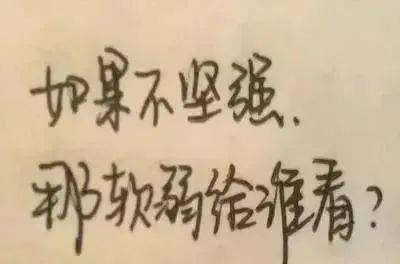 如果不坚强、
那软弱给谁看?